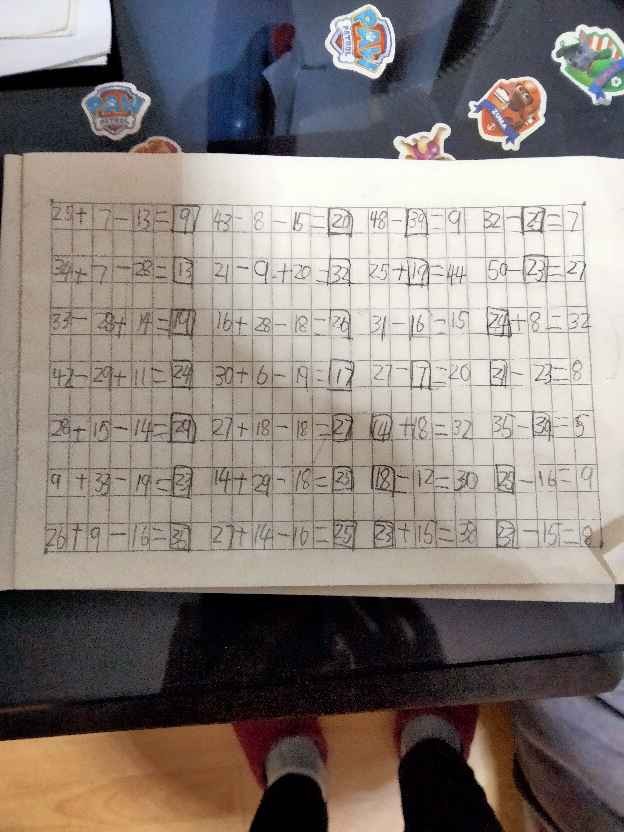 PAW
PATROL
PAW
PATROL
ZUMA
25+7-13=9 43-8-15=20 48-39=9 32-25=7
34+7-28=13 21-9+20=32 25+19=44 50-23=27
33-28+14=19 16+28-18=26 31-16=15 24+8=32
42-29+11=24 30+6-19=17 27-7=20 31-23=8
28+15-14=29 27+18-18=27 14+18=32 35-30=5
9+33-19=23 14+29-18=25 18-12=30 25-16=9
26+9-16=35 27+14-16=25 23+15=38 23-15=8